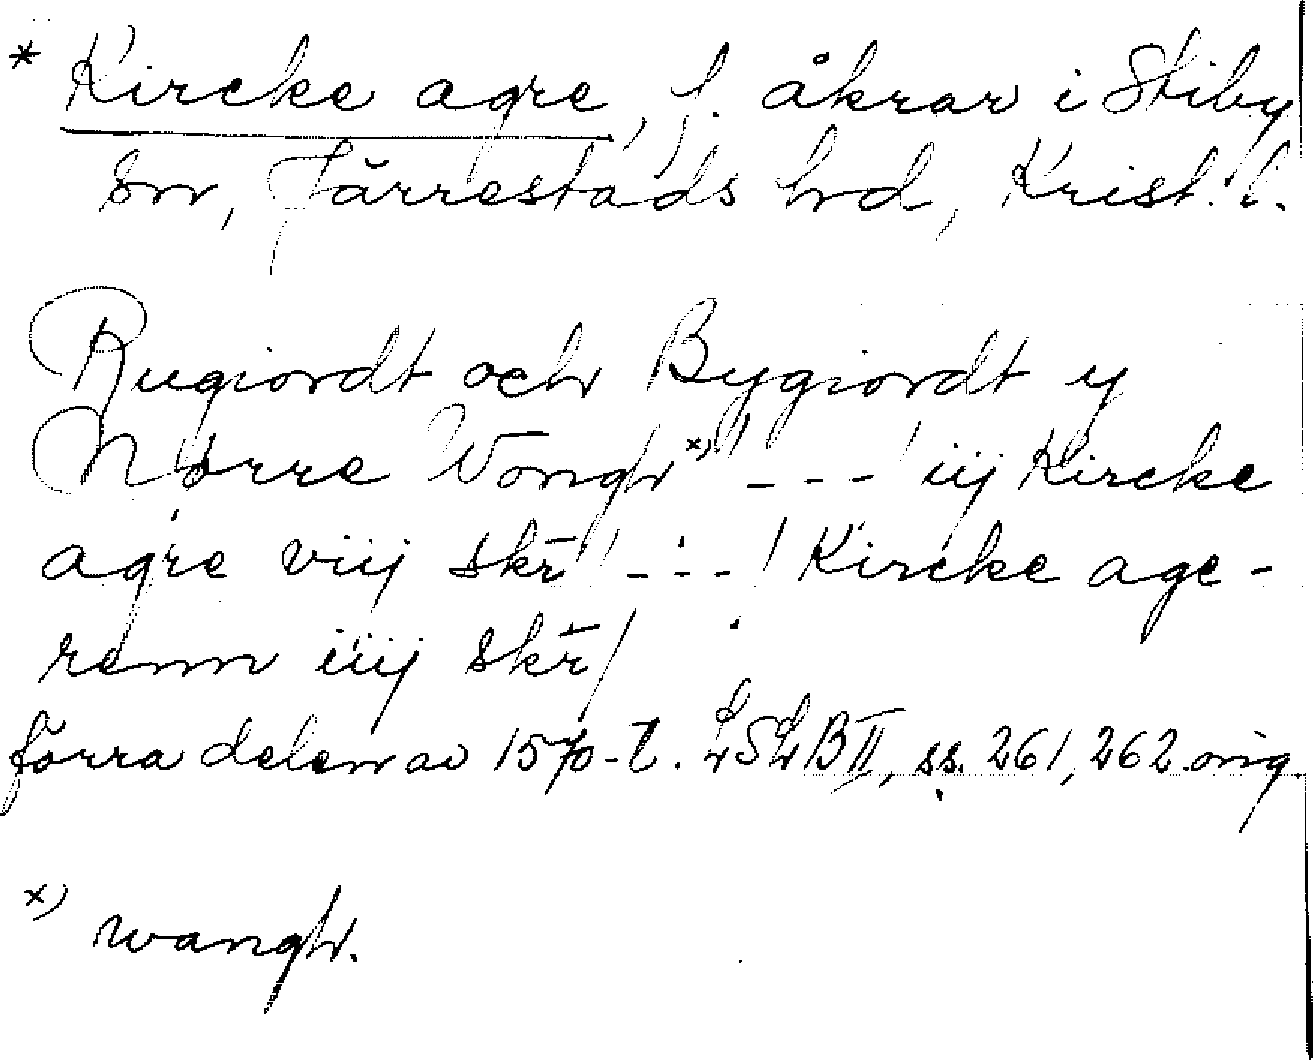 * Kircke agre, f. åkrar i Stiby
sn, Järrestads hrd, Krist. l.
Rugiordt och Bygiordt y
Nörre Vongh x) / - - - / iij Kircke
agre viij skr̄ / - - - / Kircke age-
renn iiij skr̄ /
förra delen av 1570-t. LSLB II, ss. 261, 262 orig.
x) wangh.